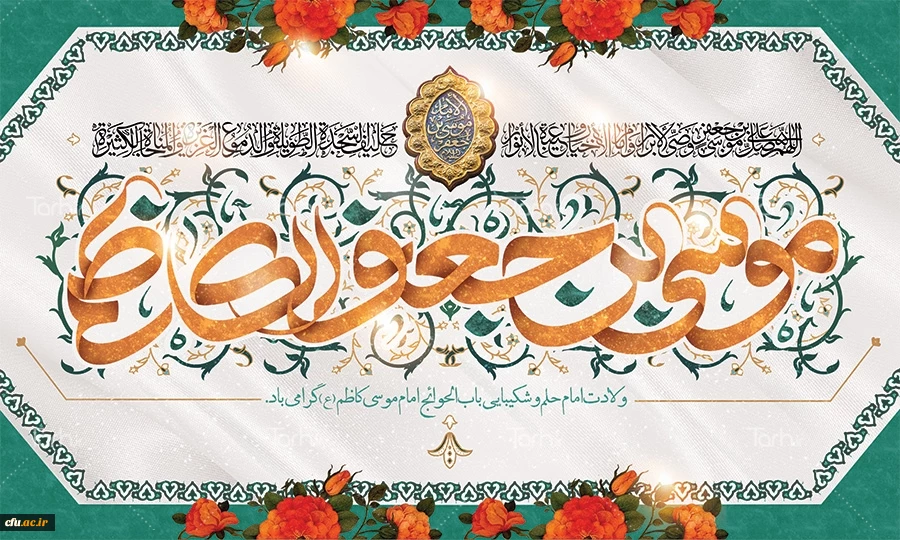 الامام موسی بن جعفر
اللهم صل علی موسی بن جعفر وصی الابرار و امام الاخیار و عیبة الانوار
حلیف السجدة الطویلة و الدموع الغزیرة و المناجاة الکثیرة
موسی بن جعفر الکاظم
ولادت امام حلم و شکیبایی باب الحوائج امام موسی کاظم (ع) گرامی باد.
cfu.ac.ir